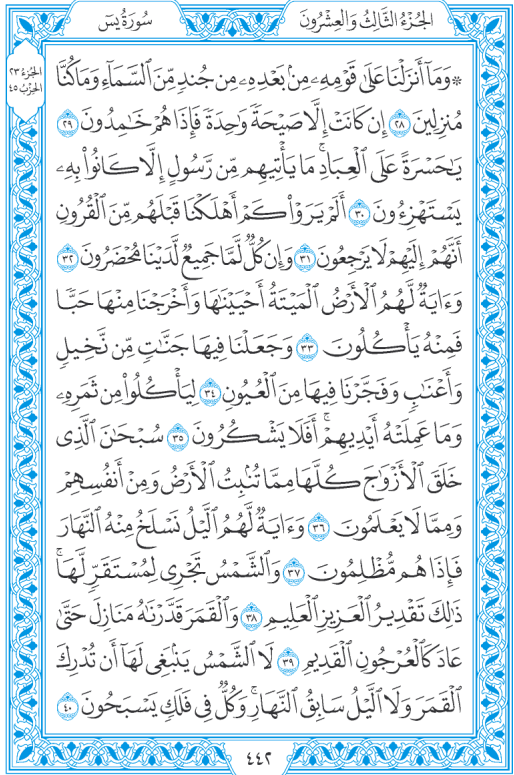 سُورَةُ يسٓ
الجُزْءُ الثَّالِثُ وَالعِشْرُونَ
الجُزْءُ ٢٣
الحِزْبُ ٤٥
۞ وَمَآ أَنزَلْنَا عَلَىٰ قَوْمِهِۦ مِنۢ بَعْدِهِۦ مِن جُندٍ مِّنَ ٱلسَّمَآءِ وَمَا كُنَّا
مُنزِلِينَ ٢٨ إِن كَانَتْ إِلَّا صَيْحَةً وَٰحِدَةً فَإِذَا هُمْ خَٰمِدُونَ ٢٩
يَٰحَسْرَةً عَلَى ٱلْعِبَادِۚ مَا يَأْتِيهِم مِّن رَّسُولٍ إِلَّا كَانُوا۟ بِهِۦ
يَسْتَهْزِءُونَ ٣٠ أَلَمْ يَرَوْا۟ كَمْ أَهْلَكْنَا قَبْلَهُم مِّنَ ٱلْقُرُونِ
أَنَّهُمْ إِلَيْهِمْ لَا يَرْجِعُونَ ٣١ وَإِن كُلٌّ لَّمَّا جَمِيعٌ لَّدَيْنَا مُحْضَرُونَ ٣٢
وَءَايَةٌ لَّهُمُ ٱلْأَرْضُ ٱلْمَيْتَةُ أَحْيَيْنَٰهَا وَأَخْرَجْنَا مِنْهَا حَبًّا
فَمِنْهُ يَأْكُلُونَ ٣٣ وَجَعَلْنَا فِيهَا جَنَّٰتٍ مِّن نَّخِيلٍ
وَأَعْنَٰبٍ وَفَجَّرْنَا فِيهَا مِنَ ٱلْعُيُونِ ٣٤ لِيَأْكُلُوا۟ مِن ثَمَرِهِۦ
وَمَا عَمِلَتْهُ أَيْدِيهِمْۚ أَفَلَا يَشْكُرُونَ ٣٥ سُبْحَٰنَ ٱلَّذِى
خَلَقَ ٱلْأَزْوَٰجَ كُلَّهَا مِمَّا تُنۢبِتُ ٱلْأَرْضُ وَمِنْ أَنفُسِهِمْ
وَمِمَّا لَا يَعْلَمُونَ ٣٦ وَءَايَةٌ لَّهُمُ ٱلَّيْلُ نَسْلَخُ مِنْهُ ٱلنَّهَارَ
فَإِذَا هُم مُّظْلِمُونَ ٣٧ وَٱلشَّمْسُ تَجْرِى لِمُسْتَقَرٍّ لَّهَاۚ
ذَٰلِكَ تَقْدِيرُ ٱلْعَزِيزِ ٱلْعَلِيمِ ٣٨ وَٱلْقَمَرَ قَدَّرْنَٰهُ مَنَازِلَ حَتَّىٰ
عَادَ كَٱلْعُرْجُونِ ٱلْقَدِيمِ ٣٩ لَا ٱلشَّمْسُ يَنۢبَغِى لَهَآ أَن تُدْرِكَ
ٱلْقَمَرَ وَلَا ٱلَّيْلُ سَابِقُ ٱلنَّهَارِۚ وَكُلٌّ فِى فَلَكٍ يَسْبَحُونَ ٤٠
٤٤٢